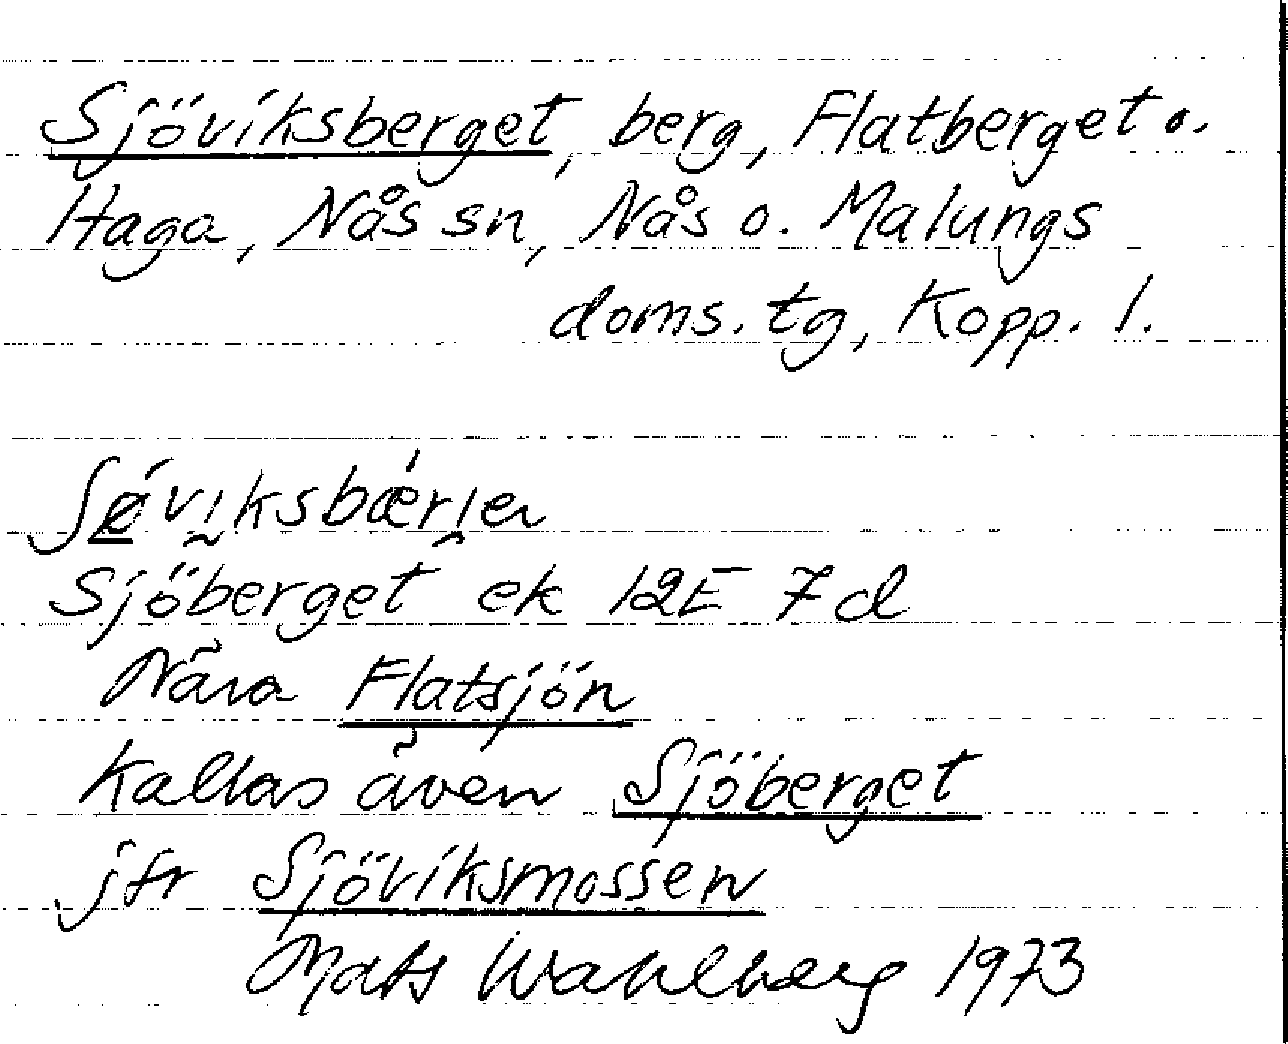 Sjöviksberget, berg, Flatberget o.
Haga, Nås sn, Nås o. Malungs
doms. tg, Kopp. l.
Sjöberget ek 12E 7d
Nära Flatsjön
Kallas även Sjöberget
jfr Sjöviksmossen
Mats Wahlberg 1973